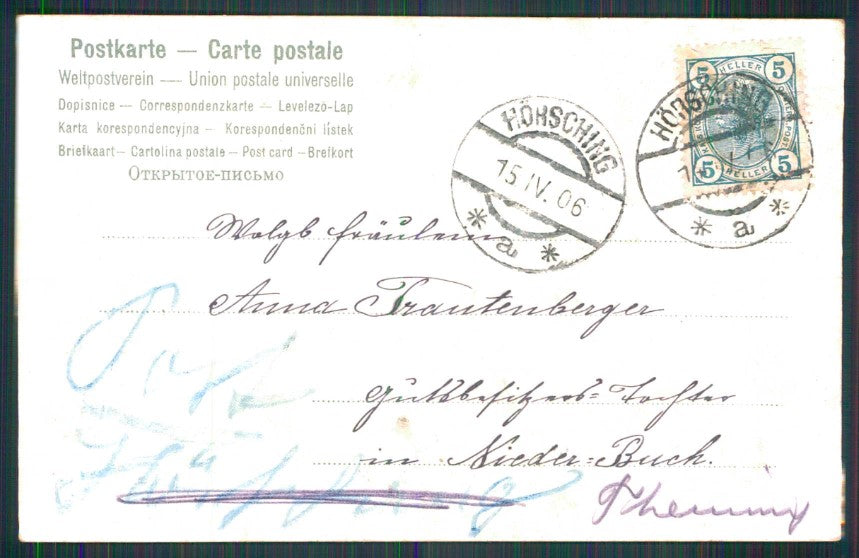 Postkarte — Carte postale
Weltpostverein — Union postale universelle
Dopisnice – Correspondenzkarte – Levelező-Lap
Karta korespondencyjna – Korespondenční lístek
Briefkaart – Cartolina postale – Post card – Brefkort
ОТКРЫТОЕ-ПИСЬМО
HÖRSCHING
15 IV. 06
* a *
5 HELLER 5
5 HELLER 5
HÖRSCHING
* a *
Wolgb Fräulein
Anna Trautenberger
Gutsbesitzers-Tochter
in Nieder-Buch.
Post